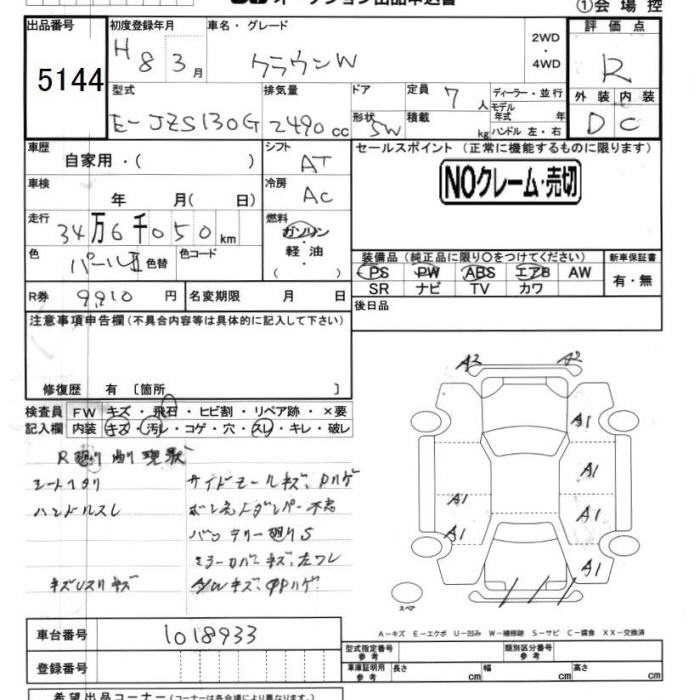 オークション出品申込書
①会場控
出品番号 初度登録年月 車名・グレード 評価点
5144 H 8 3月 クラウンW 2WD ・ 4WD R
型式 排気量 ドア 定員 7人 ディーラー・並行 外装 内装
E-JZS130G 2490cc 形状 SW 積載 kg モデル年式 年 ハンドル 左・右 D C
車歴 シフト セールスポイント (正常に機能するものに限ります)
自家用・( ) AT
NOクレーム・売切
車検 年 月( 日) 冷房 AC
走行 34万6千050km 燃料 ガソリン・軽油 ( )
色 パールII 色替 色コード
装備品 (純正品に限り○をつけてください) 新車保証書
PS PW ABS エアB AW 有・無
SR ナビ TV カワ
R券 9,910円 名変期限 月 日 後日品
注意事項申告欄(不具合内容等は具体的に記入して下さい)
修復歴 有 〔箇所 〕
検査員 FW キズ・飛石・ヒビ割・リペア跡・×要
記入欄 内装 キズ・汚レ・コゲ・穴・スレ・キレ・破レ
シートヘタリ サイドモールキズ、Pハゲ
ハンドルスレ ボンネットダンパー不良
バッテリー
ミラーカバーキズ、左ワレ
A2 A2
A1
A1 A1
A1 A1
A1 A1
スペア
A-キズ E-エクボ U-凹み W-補修跡 S-サビ C-腐食 XX-交換済
車台番号 1018933
登録番号
型式指定番号 参考 類別区分番号 参考
車車証明用 参考 長さ cm 幅 cm 高さ cm
希望出品コーナー(コーナーは各会場により異なります)